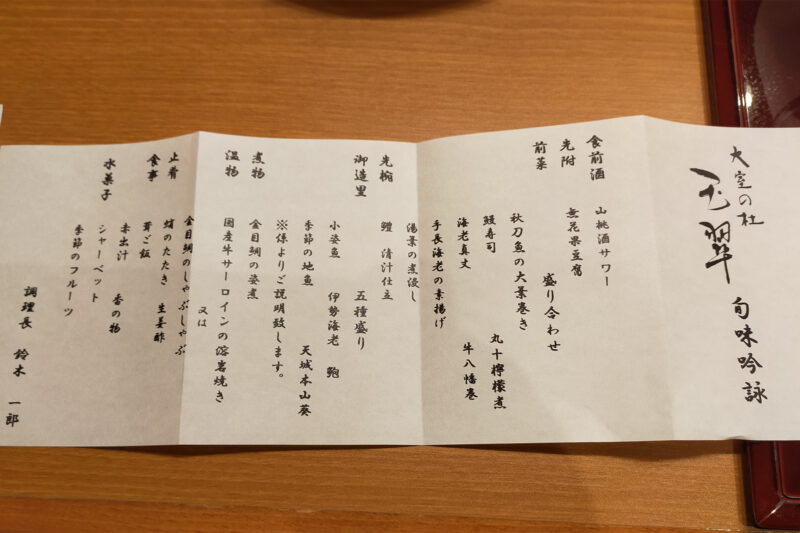 大室の杜
玉翠 旬味吟詠
食前酒 山桃酒サワー
先附 無花果豆腐
前菜 盛り合わせ
秋刀魚の大葉巻き
鰻寿司 丸十檸檬煮
海老真丈 牛八幡巻
手長海老の素揚げ
湯葉の煮浸し
先椀 鱧 清汁仕立
御造里 五種盛り
小姿魚 伊勢海老 鮑
季節の地魚 天城本山葵
※係よりご説明致します。
煮物 金目鯛の姿煮
温物 国産牛サーロインの溶岩焼き
又は
金目鯛のしゃぶしゃぶ
止肴 蛸のたたき 生姜酢
食事 茸ご飯
赤出汁 香の物
水菓子 シャーベット
季節のフルーツ
調理長 鈴木 一郎